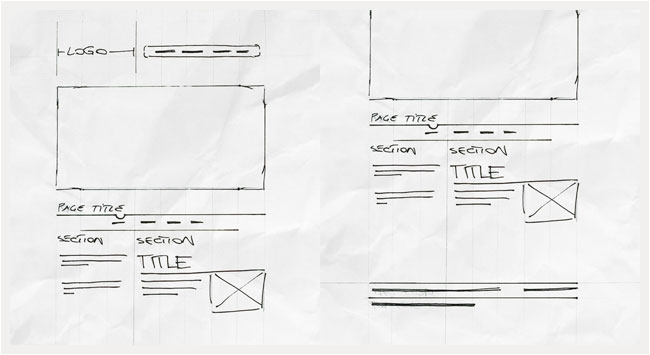 LOGO
PAGE TITLE
SECTION SECTION
TITLE
PAGE TITLE
SECTION SECTION
TITLE